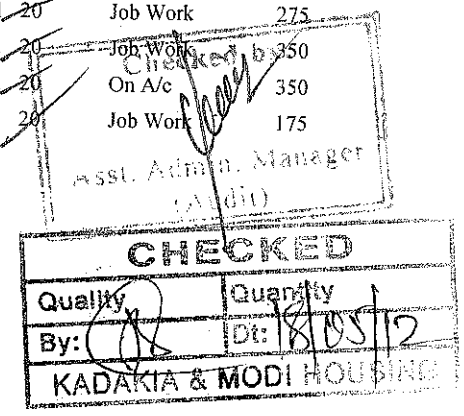 20 Job Work 275
20 Job Work 350
Checked by
20 On A/c 350
20 Job Work 175
Asst. Admin. Manager
(Audit)
CHECKED
Quality Quantity
By: Dt: 18/05/12
KADAKIA & MODI HOUSING